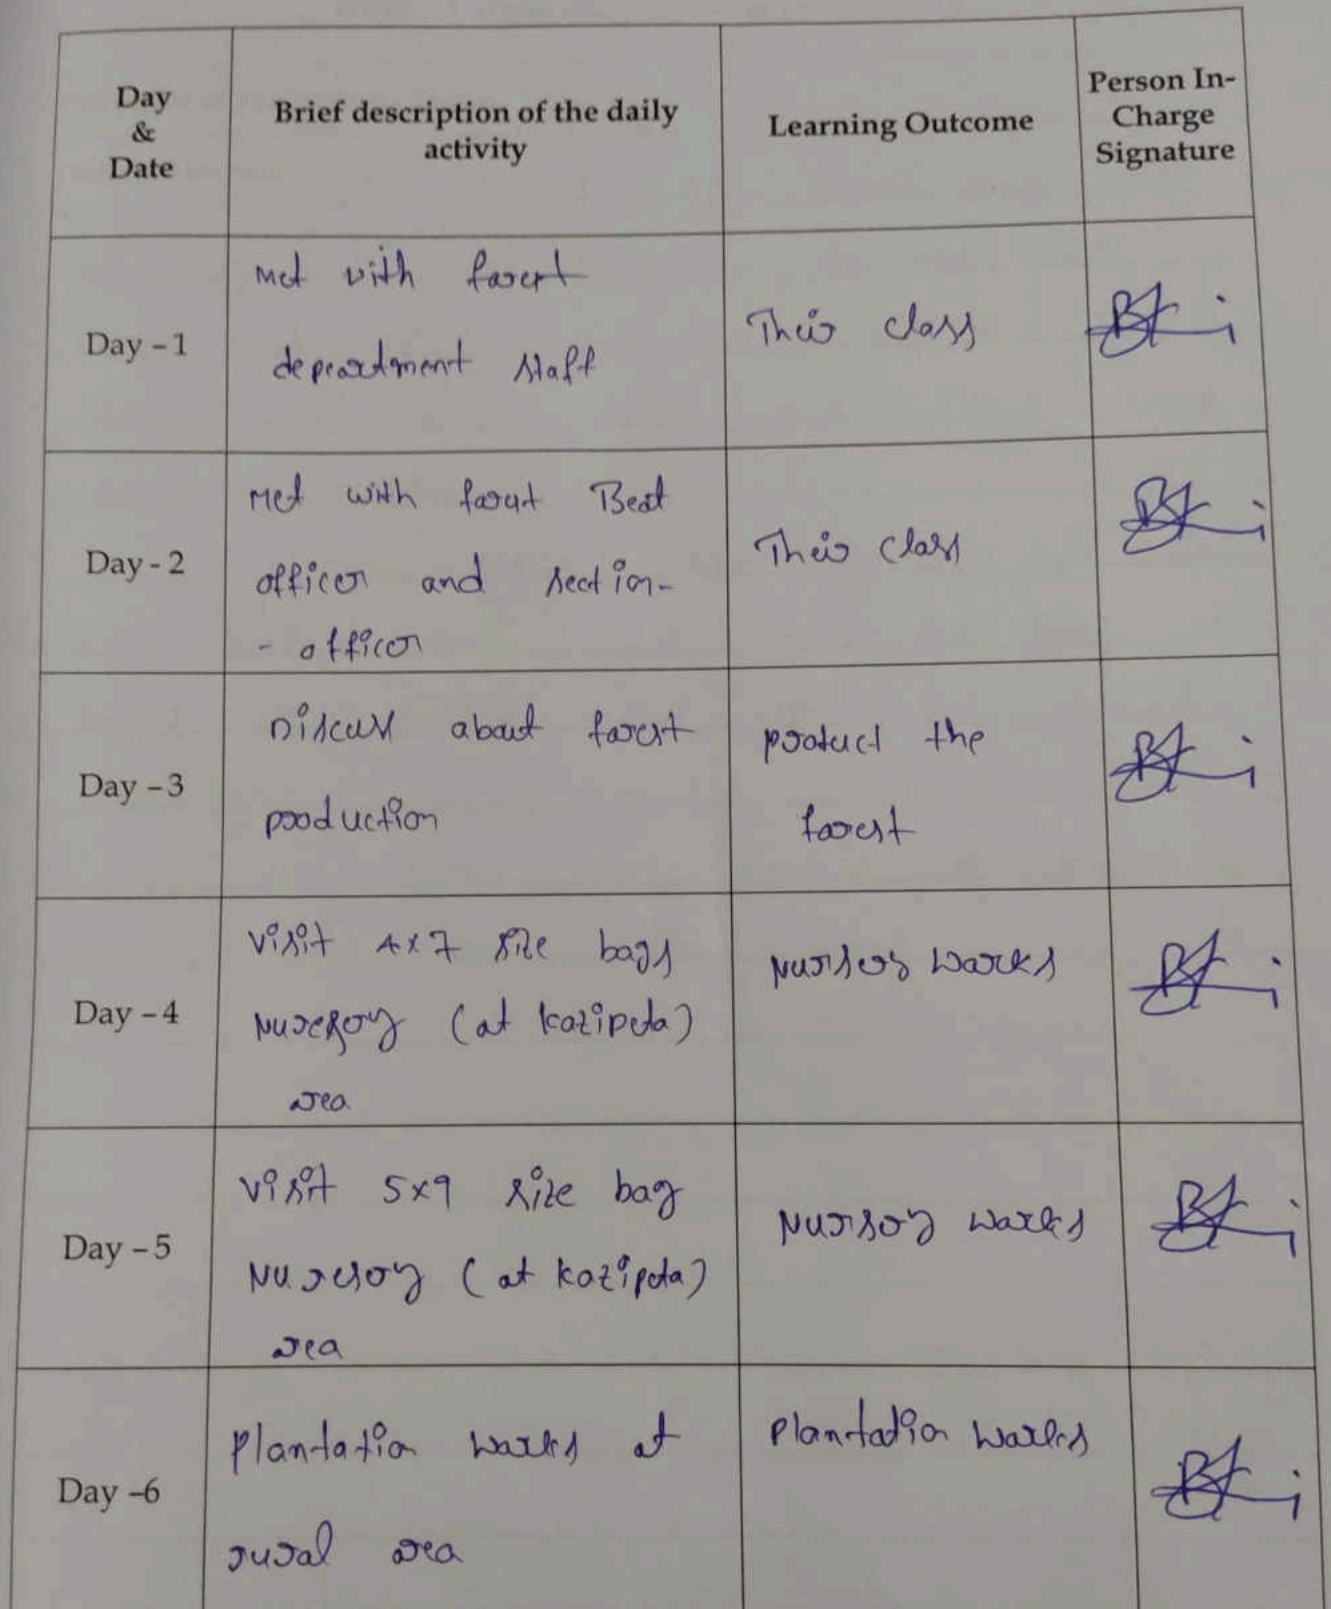 Day
&
Date
Brief description of the daily
activity
Learning Outcome
Person In-
Charge
Signature
Day – 1
Met with forest
depeartment staff
Their class
Day - 2
Met with forest Beat
officer and section-
- officer
Their class
Day – 3
Discuss about forest
production
product the
forest
Day – 4
visit 4x7 size bags
Nursery (at kazipeta)
area
Nursery works
Day – 5
visit 5x9 size bag
Nursery (at kazipeta)
area
Nursery works
Day –6
plantation works at
rural area
plantation works